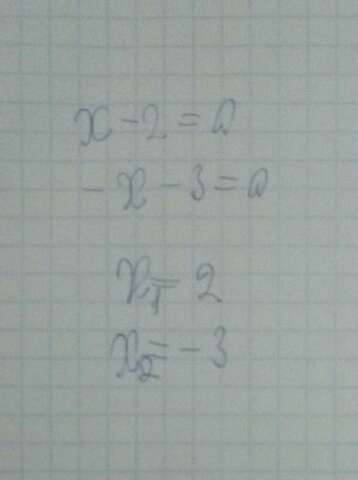 x - 2 = 0
- x - 3 = 0
x₁ = 2
x₂ = - 3